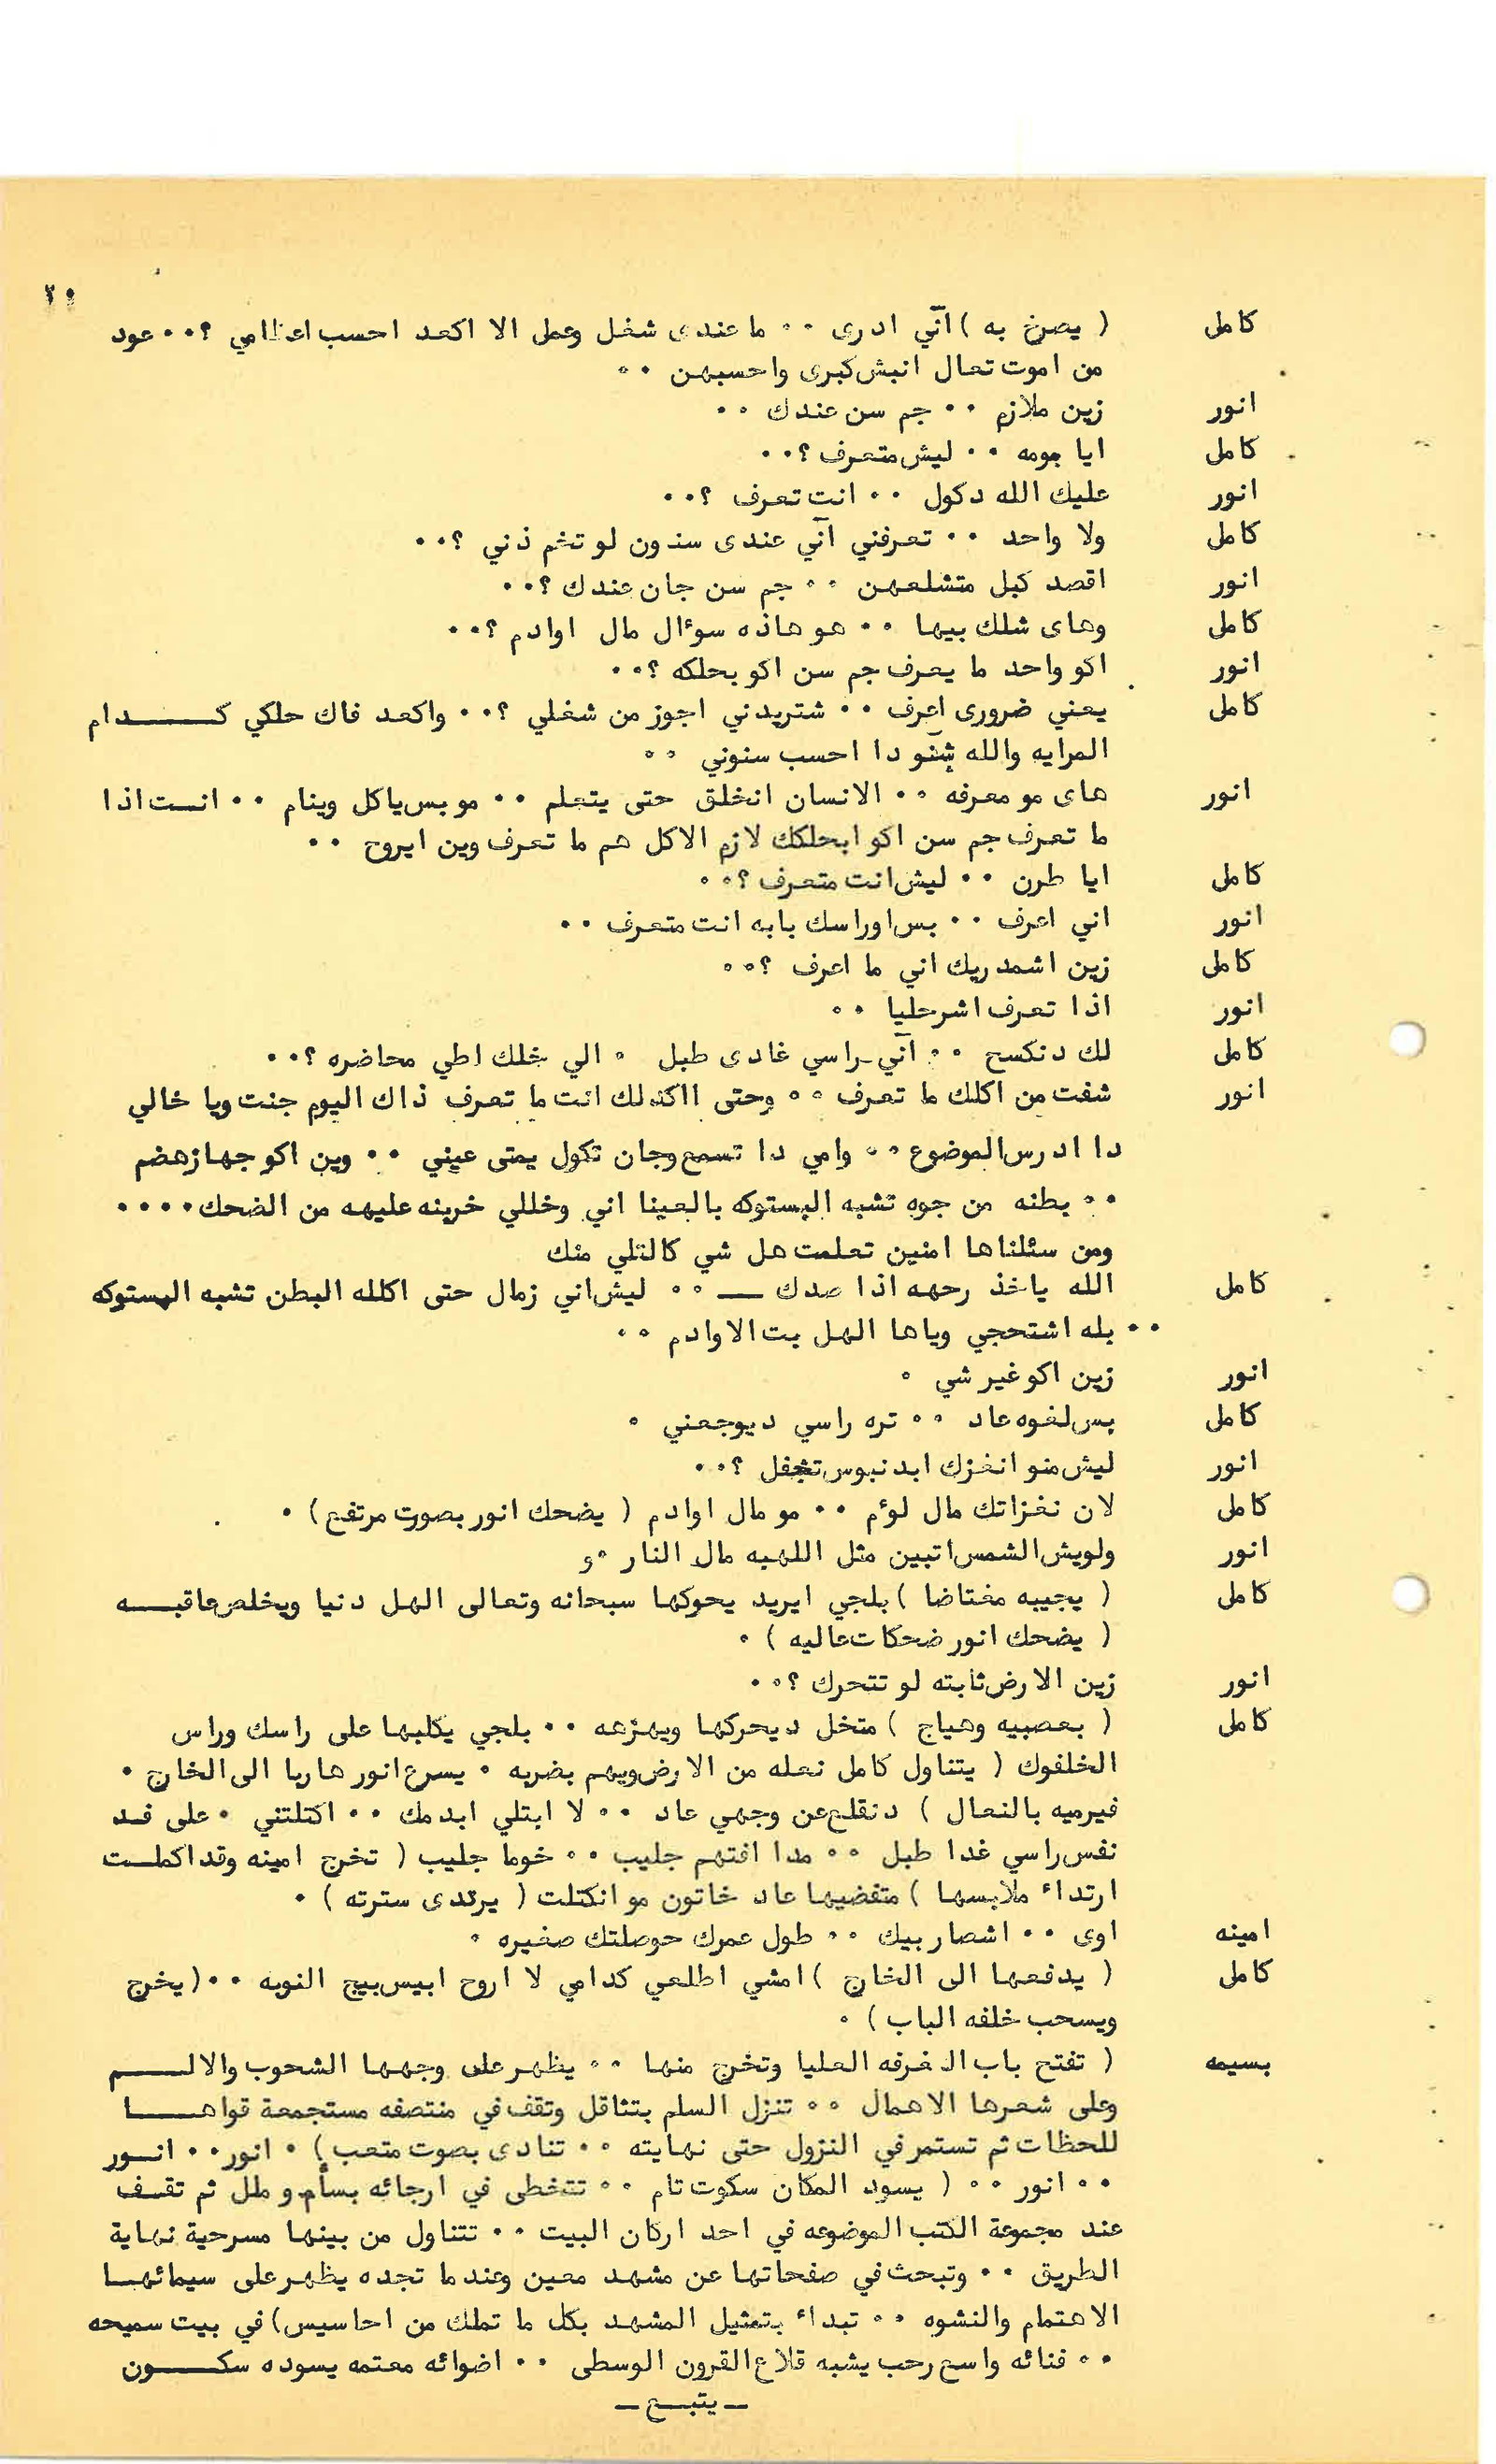 ٢٥
كامل ( يصرخ به ) آني ادرى ۰۰ ما عندى شغل وعمل الا اكعد احسب اعظامي ؟۰۰ عود
من اموت تعال انبش كبرى واحسبهن ۰۰
انور زين ملازم ۰۰ جم سن عندك ۰۰
كامل ايا بومه ۰۰ ليش متعرف ؟۰۰
انور عليك الله دكول ۰۰ انت تعرف ؟۰۰
كامل ولا واحد ۰۰ تعرفني آني عندى سنون لو تخم ذني ؟۰۰
انور اقصد كبل متشلعهن ۰۰ جم سن جان عندك ؟۰۰
كامل وهاى شلك بيها ۰۰ هو هاذه سوءال مال اوادم ؟۰۰
انور اكو واحد ما يعرف جم سن اكو بحلكه ؟۰۰
كامل يعني ضرورى اعرف ۰۰ شتريدني اجوز من شغلي ؟۰۰ واكعد فاك حلكي كـــدام
المرايه والله شنو دا احسب سنوني ۰۰
انور هاى مو معرفه ۰۰ الانسان انخلق حتى يتعلم ۰۰ مو بس ياكل وينام ۰۰ انــت اذا
ما تعرف جم سن اكو ابحلكك لازم الاكل هم ما تعرف وين ايروح ۰۰
كامل ايا طرن ۰۰ ليش انت متعرف ؟۰۰
انور اني اعرف ۰۰ بس اوراسك بابه انت متعرف ۰۰
كامل زين اشمدريك اني ما اعرف ؟۰۰
انور اذا تعرف اشرحليا ۰۰
كامل لك دنكسح ۰۰ آني راسي غادى طبل ۰ الي خلك اطي محاضره ؟۰۰
انور شفت من اكلك ما تعرف ۰۰ وحتى ااكدلك انت ما تعرف ذاك اليوم جنت ويا خالي
دا ادرس الموضوع ۰۰ وامي دا تسمع وجان تكول يمتى عيني ۰۰ وين اكو جهاز هضم
۰۰ بطنه من جوه تشبه البستوكه بالعينا اني وخللي خرينه عليهه من الضحك ۰۰۰۰
ومن سئلناها امنين تعلمت هل شي كالتلي منك
كامل الله ياخذ رحهه اذا صدك ـــ ۰۰ ليش اني زمال حتى اكلله البطن تشبه البستوكه
۰۰ بله اشتحجي وياها الهل بت الاوادم ۰۰
انور زين اكو غير شي ۰
كامل بس لغوه عاد ۰۰ تره راسي ديوجعني ۰
انور ليش منو انغزك ابدنبوس تجفل ؟۰۰
كامل لان نغزاتك مال لوءم ۰۰ مو مال اوادم ( يضحك انور بصوت مرتفع ) ۰
انور ولويش الشمس اتبين مثل اللهبه مال النار ۰و
كامل ( يجيبه مغتاضا ) بلجي ايريد يحوكها سبحانه وتعالى الهل دنيا ويخلص عاقبــه
( يضحك انور ضحكات عاليه ) ۰
انور زين الارض ثابته لو تتحرك ؟۰۰
كامل ( بعصبيه وهياج ) متخل ديحركها ويهزهه ۰۰ بلجي يكلبها على راسك وراس
الخلفوك ( يتناول كامل نعله من الارض ويهم بضربه ۰ يسرع انور هاربا الى الخارج ۰
فيرميه بالنعال ) دنقلع عن وجهي عاد ۰۰ لا ابتلي ابدمك ۰۰ اكتلتني ۰ على فــد
نفس راسي غدا طبل ۰۰ مدا افتهم جليب ۰۰ خوما جليب ( تخرج امينه وقد اكملــت
ارتداء ملابسها ) متفضيها عاد خاتون مو انكتلت ( يرتدى سترته ) ۰
امينه اوى ۰۰ اشصار بيك ۰۰ طول عمرك حوصلتك صغيره ۰
كامل ( يدفعها الى الخارج ) امشي اطلعي كدامي لا اروح ابيس بيج النوبه ۰۰ ( يخرج
ويسحب خلفه الباب ) ۰
بسيمه ( تفتح باب الغرفه العليا وتخرج منها ۰۰ يظهر على وجهها الشحوب والالـــم
وعلى شعرها الاهمال ۰۰ تنزل السلم بتثاقل وتقف في منتصفه مستجمعة قواهــا
للحظات ثم تستمر في النزول حتى نهايته ۰۰ تنادى بصوت متعب ) ۰ انور ۰۰ انــور
۰۰ انور ۰۰ ( يسود المكان سكوت تام ۰۰ تتخطى في ارجائه بسأم وملل ثم تقــف
عند مجموعة الكتب الموضوعه في احد اركان البيت ۰۰ تتناول من بينها مسرحية نهاية
الطريق ۰۰ وتبحث في صفحاتها عن مشهد معين وعندما تجده يظهر على سيمائهــا
الاهتمام والنشوه ۰۰ تبداء بتمثيل المشهد بكل ما تملك من احاسيس ) في بيت سميحه
۰۰ فنائه واسع رحب يشبه قلاع القرون الوسطى ۰۰ اضوائه معتمه يسوده سكـــون
ـ يتبــع ـ